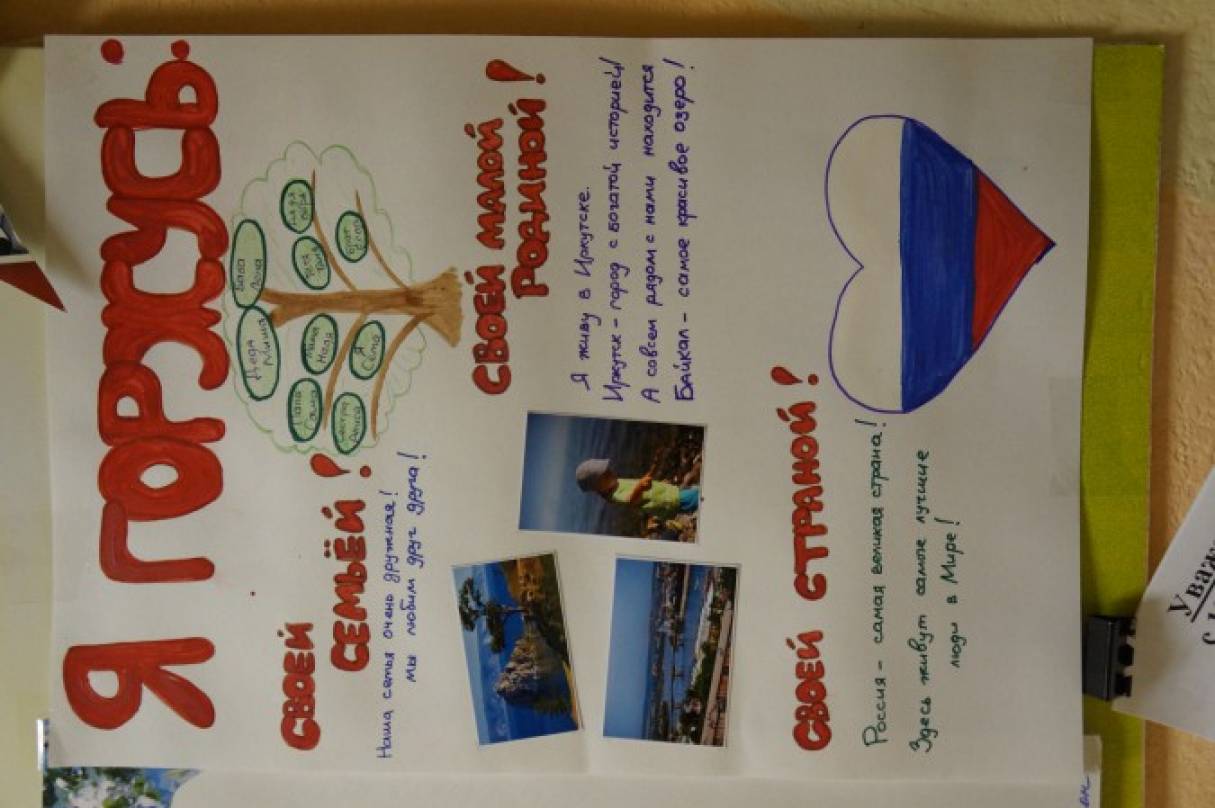 Я ГОРЖУСЬ:
СВОЕЙ
СЕМЬЁЙ!
Наша семья очень дружная!
мы любим друг друга!
Деда Миша
Баба Лена
Папа Саша
Мама Неля
Сестра Алиса
Я Света
СВОЕЙ МАЛОЙ
РОДИНОЙ!
Я живу в Иркутске.
Иркутск - город с богатой историей!
А совсем рядом с нами находится
Байкал - самое красивое озеро!
СВОЕЙ СТРАНОЙ!
Россия - самая великая страна!
Здесь живут самые лучшие
люди в Мире!